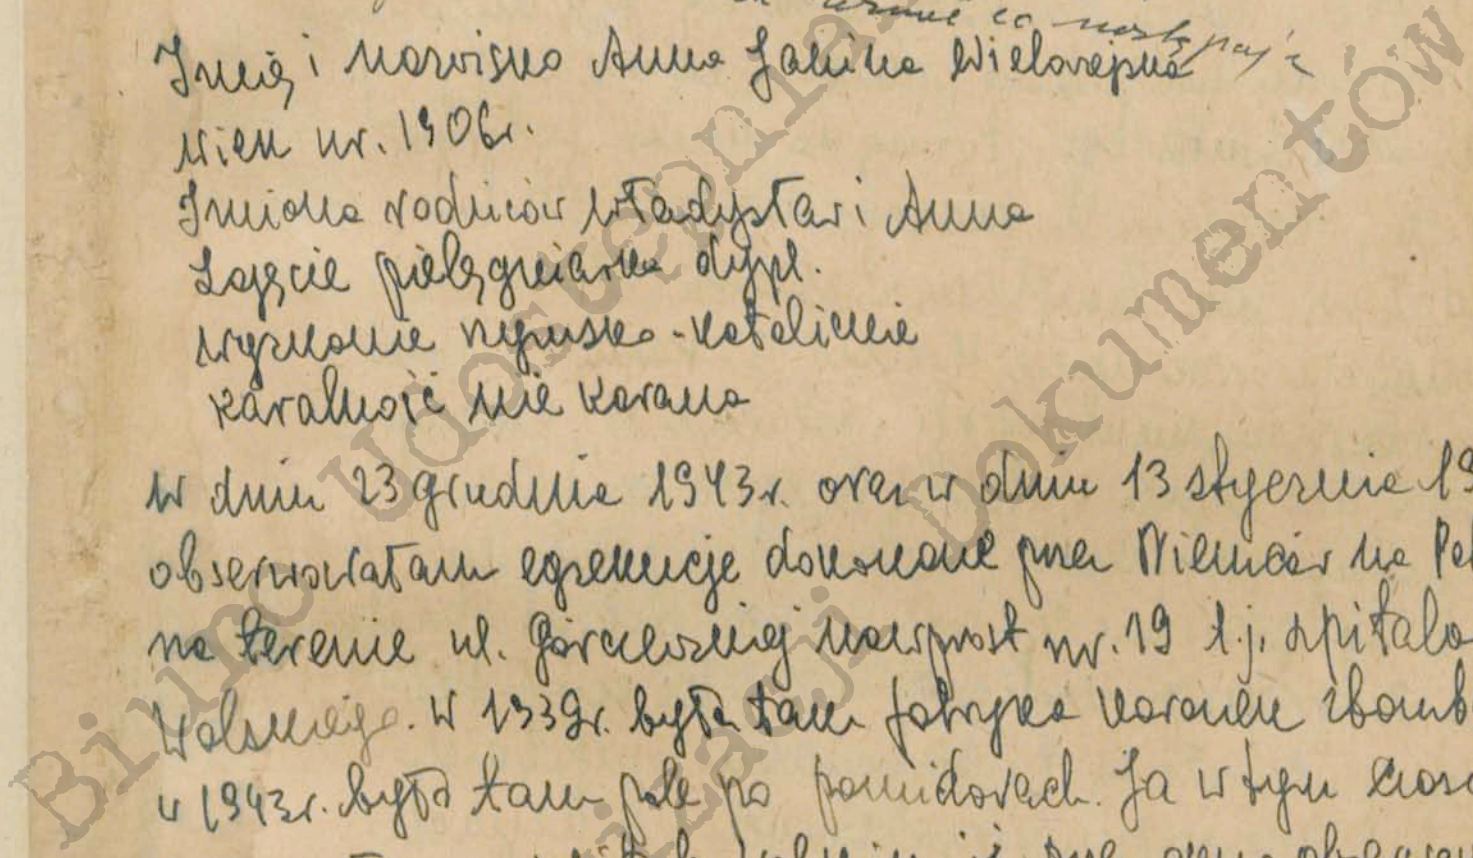 zeznaje co następuje
Imię i nazwisko Anna Janina Wielowiejska
wiek ur. 1906r.
Imiona rodziców Władysław i Anna
Zajęcie pielęgniarka dypl.
wyznanie rzymsko-katolickie
karalność nie karana
W dniu 23 grudnia 1943r. oraz w dniu 13 stycznia 19
obserwowałam egzekucje dokonane przez Niemców na Po
na terenie ul. Górczewskiej nawprost nr. 19 t.j. szpitala
Wolskiego. W 1939r. była tam fabryka koronek zbomb
w 1943r. było tam pole po pomidorach. Ja w tym czas
Biuro Udostępniania
i
Dokumentów